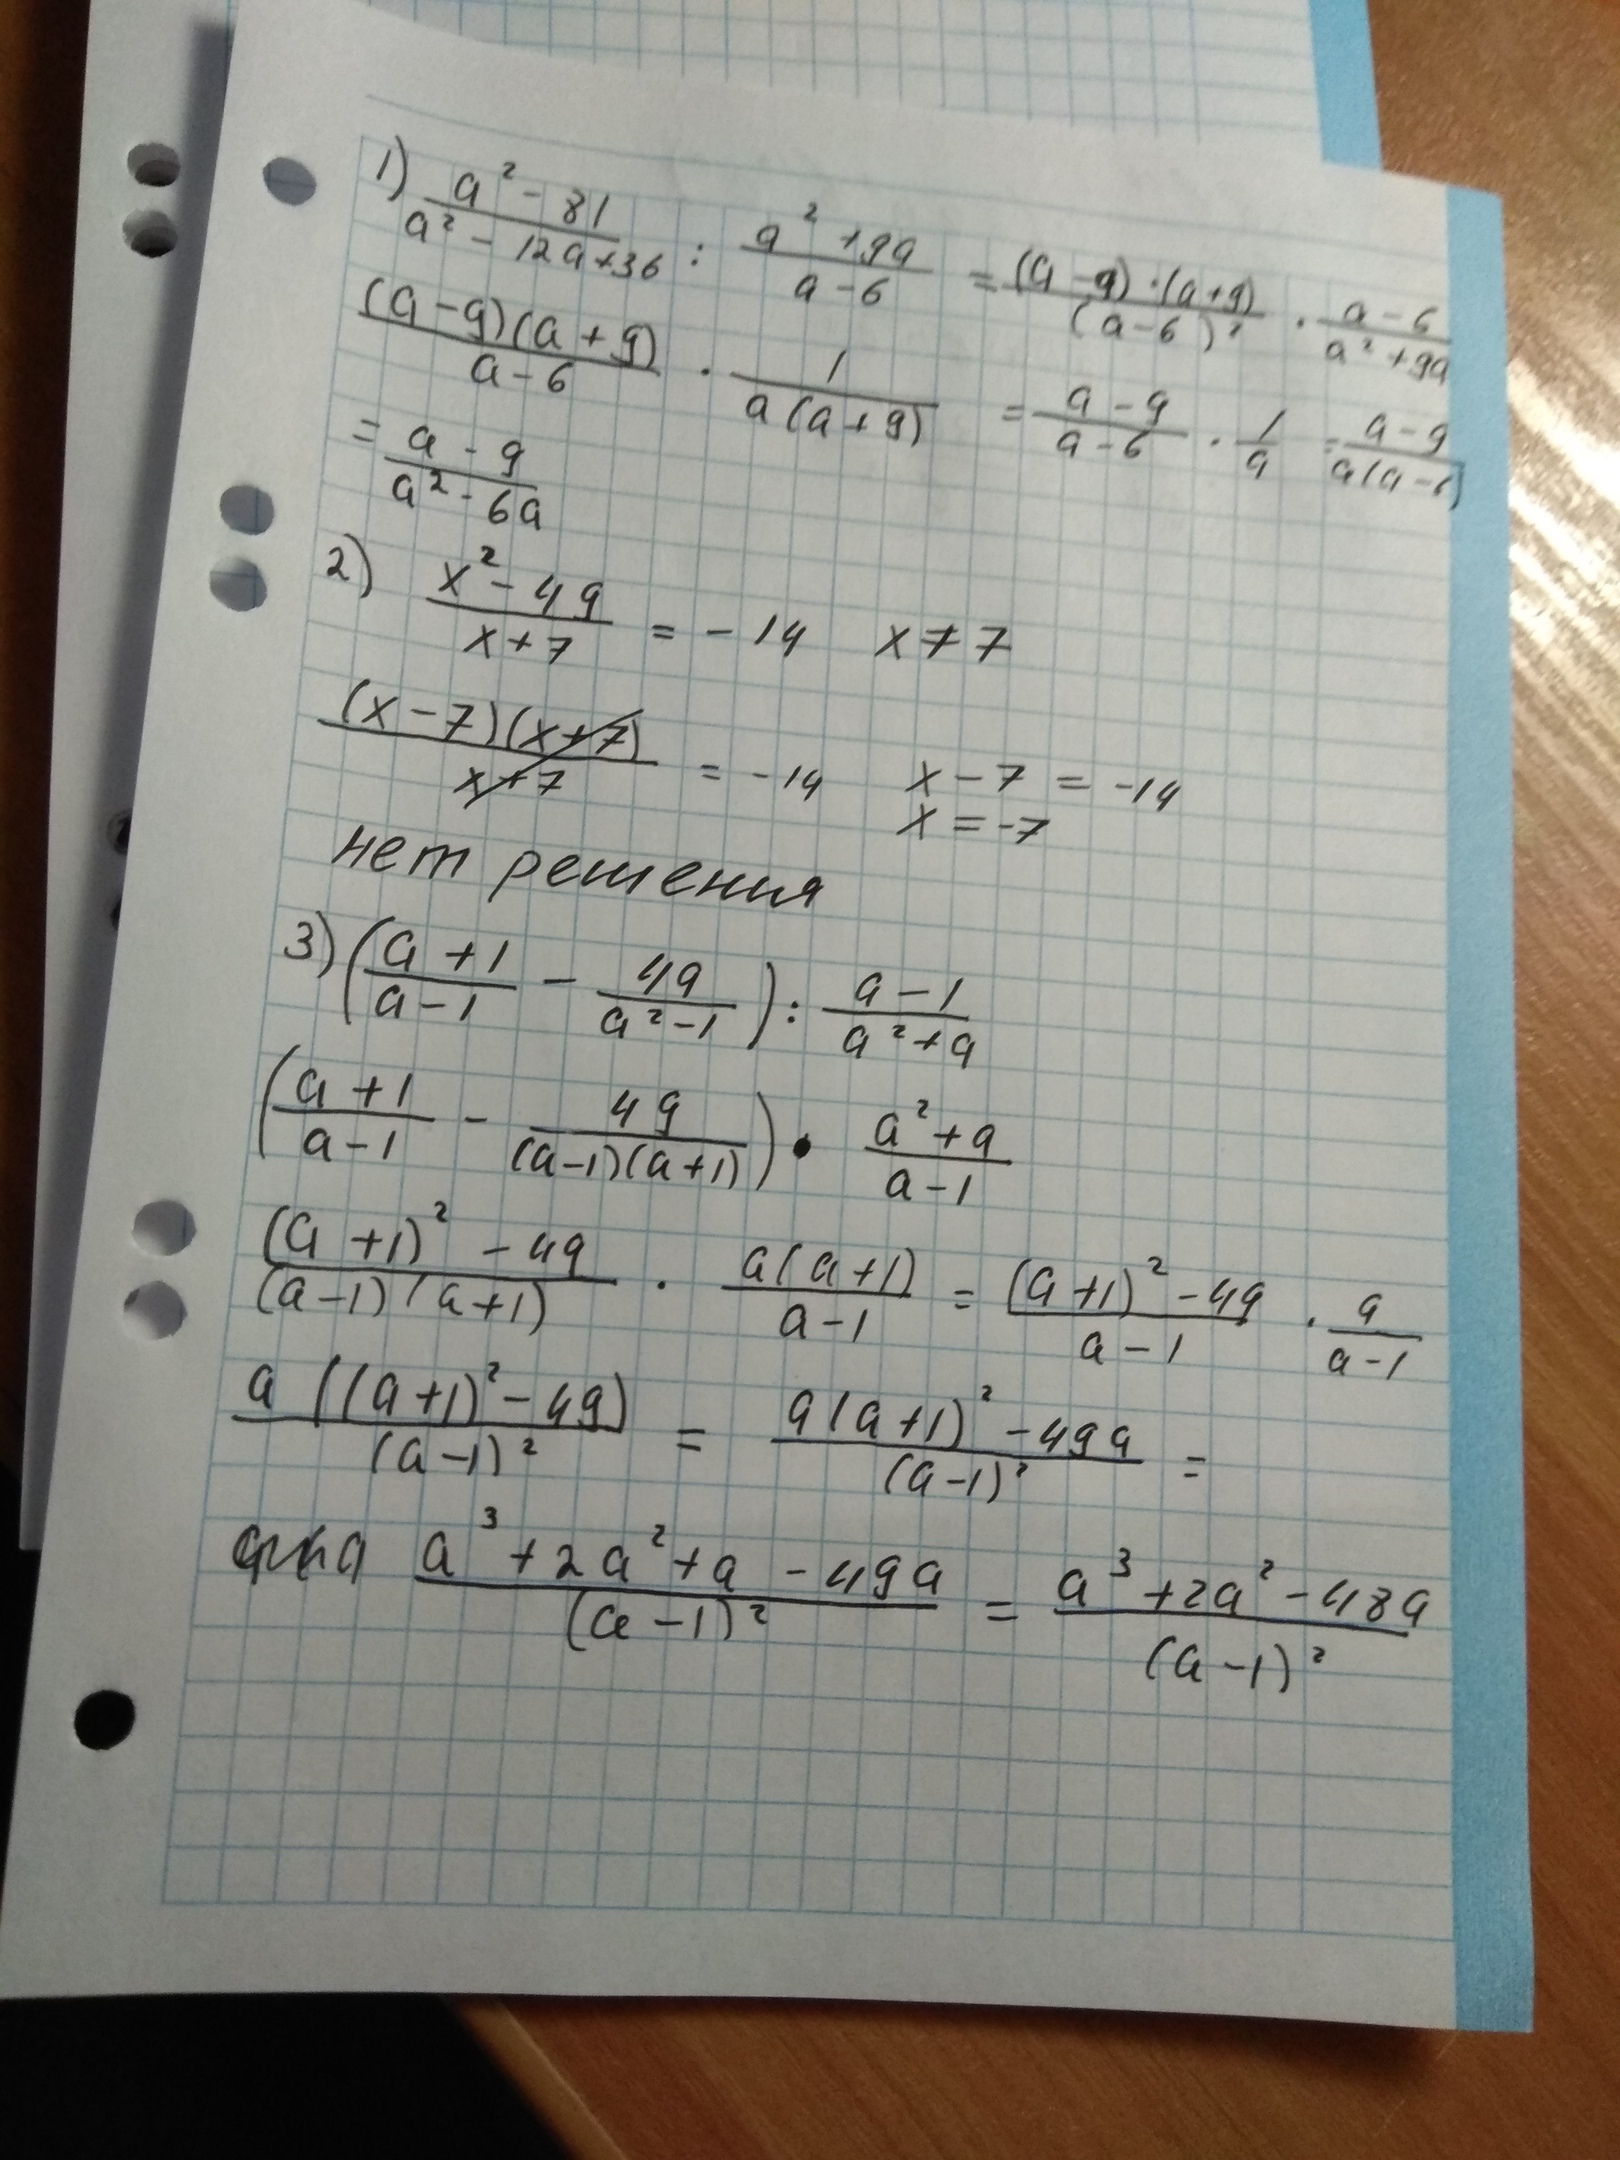 1) (a² - 81)/(a² - 12a + 36) : (a² + 9a)/(a - 6) = ((a - 9)·(a + 9))/(a - 6)² · (a - 6)/(a² + 9a)
((a - 9)(a + 9))/(a - 6) · 1/(a(a + 9)) = (a - 9)/(a - 6) · 1/a = (a - 9)/(a(a - 6))
= (a - 9)/(a² - 6a)
2) (x² - 49)/(x + 7) = -14 x ≠ 7
((x - 7)(x + 7))/(x + 7) = -14 x - 7 = -14
x = -7
нет решения
3) ((a + 1)/(a - 1) - 49/(a² - 1)) : (a - 1)/(a² + a)
((a + 1)/(a - 1) - 49/((a - 1)(a + 1))) · (a² + a)/(a - 1)
((a + 1)² - 49)/((a - 1)(a + 1)) · (a(a + 1))/(a - 1) = ((a + 1)² - 49)/(a - 1) · a/(a - 1)
(a((a + 1)² - 49))/(a - 1)² = (a(a + 1)² - 49a)/(a - 1)² =
(a³ + 2a² + a - 49a)/(a - 1)² = (a³ + 2a² - 48a)/(a - 1)²